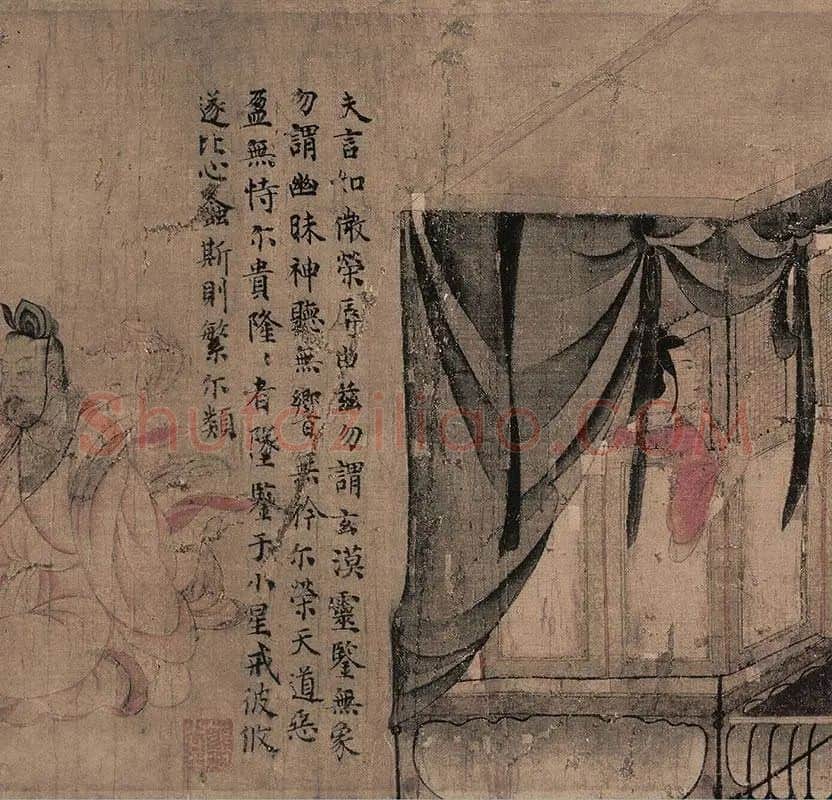 夫言如微榮辱由茲勿謂玄漠靈鑒無象
勿謂幽昧神聽無響無矜尓榮天道惡
盈無恃尓貴隆〻者墜鑒于小星戒彼攸
遂比心螽斯則繁尓類
Shufaziliao.COM